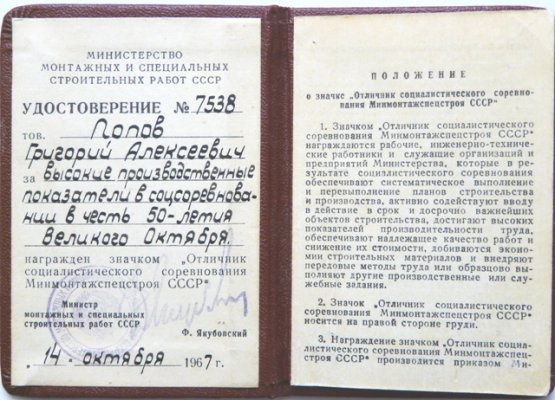 МИНИСТЕРСТВО
МОНТАЖНЫХ И СПЕЦИАЛЬНЫХ
СТРОИТЕЛЬНЫХ РАБОТ СССР
УДОСТОВЕРЕНИЕ № 7538
тов. Попов
Григорий Алексеевич
за высокие производственные
показатели в соцсоревнова-
нии в честь 50-летия
Великого Октября
награжден значком "Отличник
социалистического соревнования
Минмонтажспецстроя СССР"
Министр
монтажных и специальных
строительных работ СССР
Ф. Якубовский
"14" октября 1967 г.
ПОЛОЖЕНИЕ
о значке „Отличник социалистического соревно-
вания Минмонтажспецстроя СССР"
1. Значком „Отличник социалистического
соревнования Минмонтажспецстроя СССР"
награждаются рабочие, инженерно-техни-
ческие работники и служащие организаций и
предприятий Министерства, которые в ре-
зультате социалистического соревнования
обеспечивают систематическое выполнение
и перевыполнение планов строительства
и производства, активно содействуют вводу
в действие в срок и досрочно важнейших
объектов строительства, достигают высоких
показателей производительности труда,
обеспечивают надлежащее качество работ и
снижение их стоимости, добиваются эконо-
мии строительных материалов и внедряют
передовые методы труда или образцово вы-
полняют другие производственные или слу-
жебные задания.
2. Значок „Отличник социалистического
соревнования Минмонтажспецстроя СССР"
носится на правой стороне груди.
3. Награждение значком „Отличник социа-
листического соревнования Минмонтажспец-
строя СССР" производится приказом Ми-